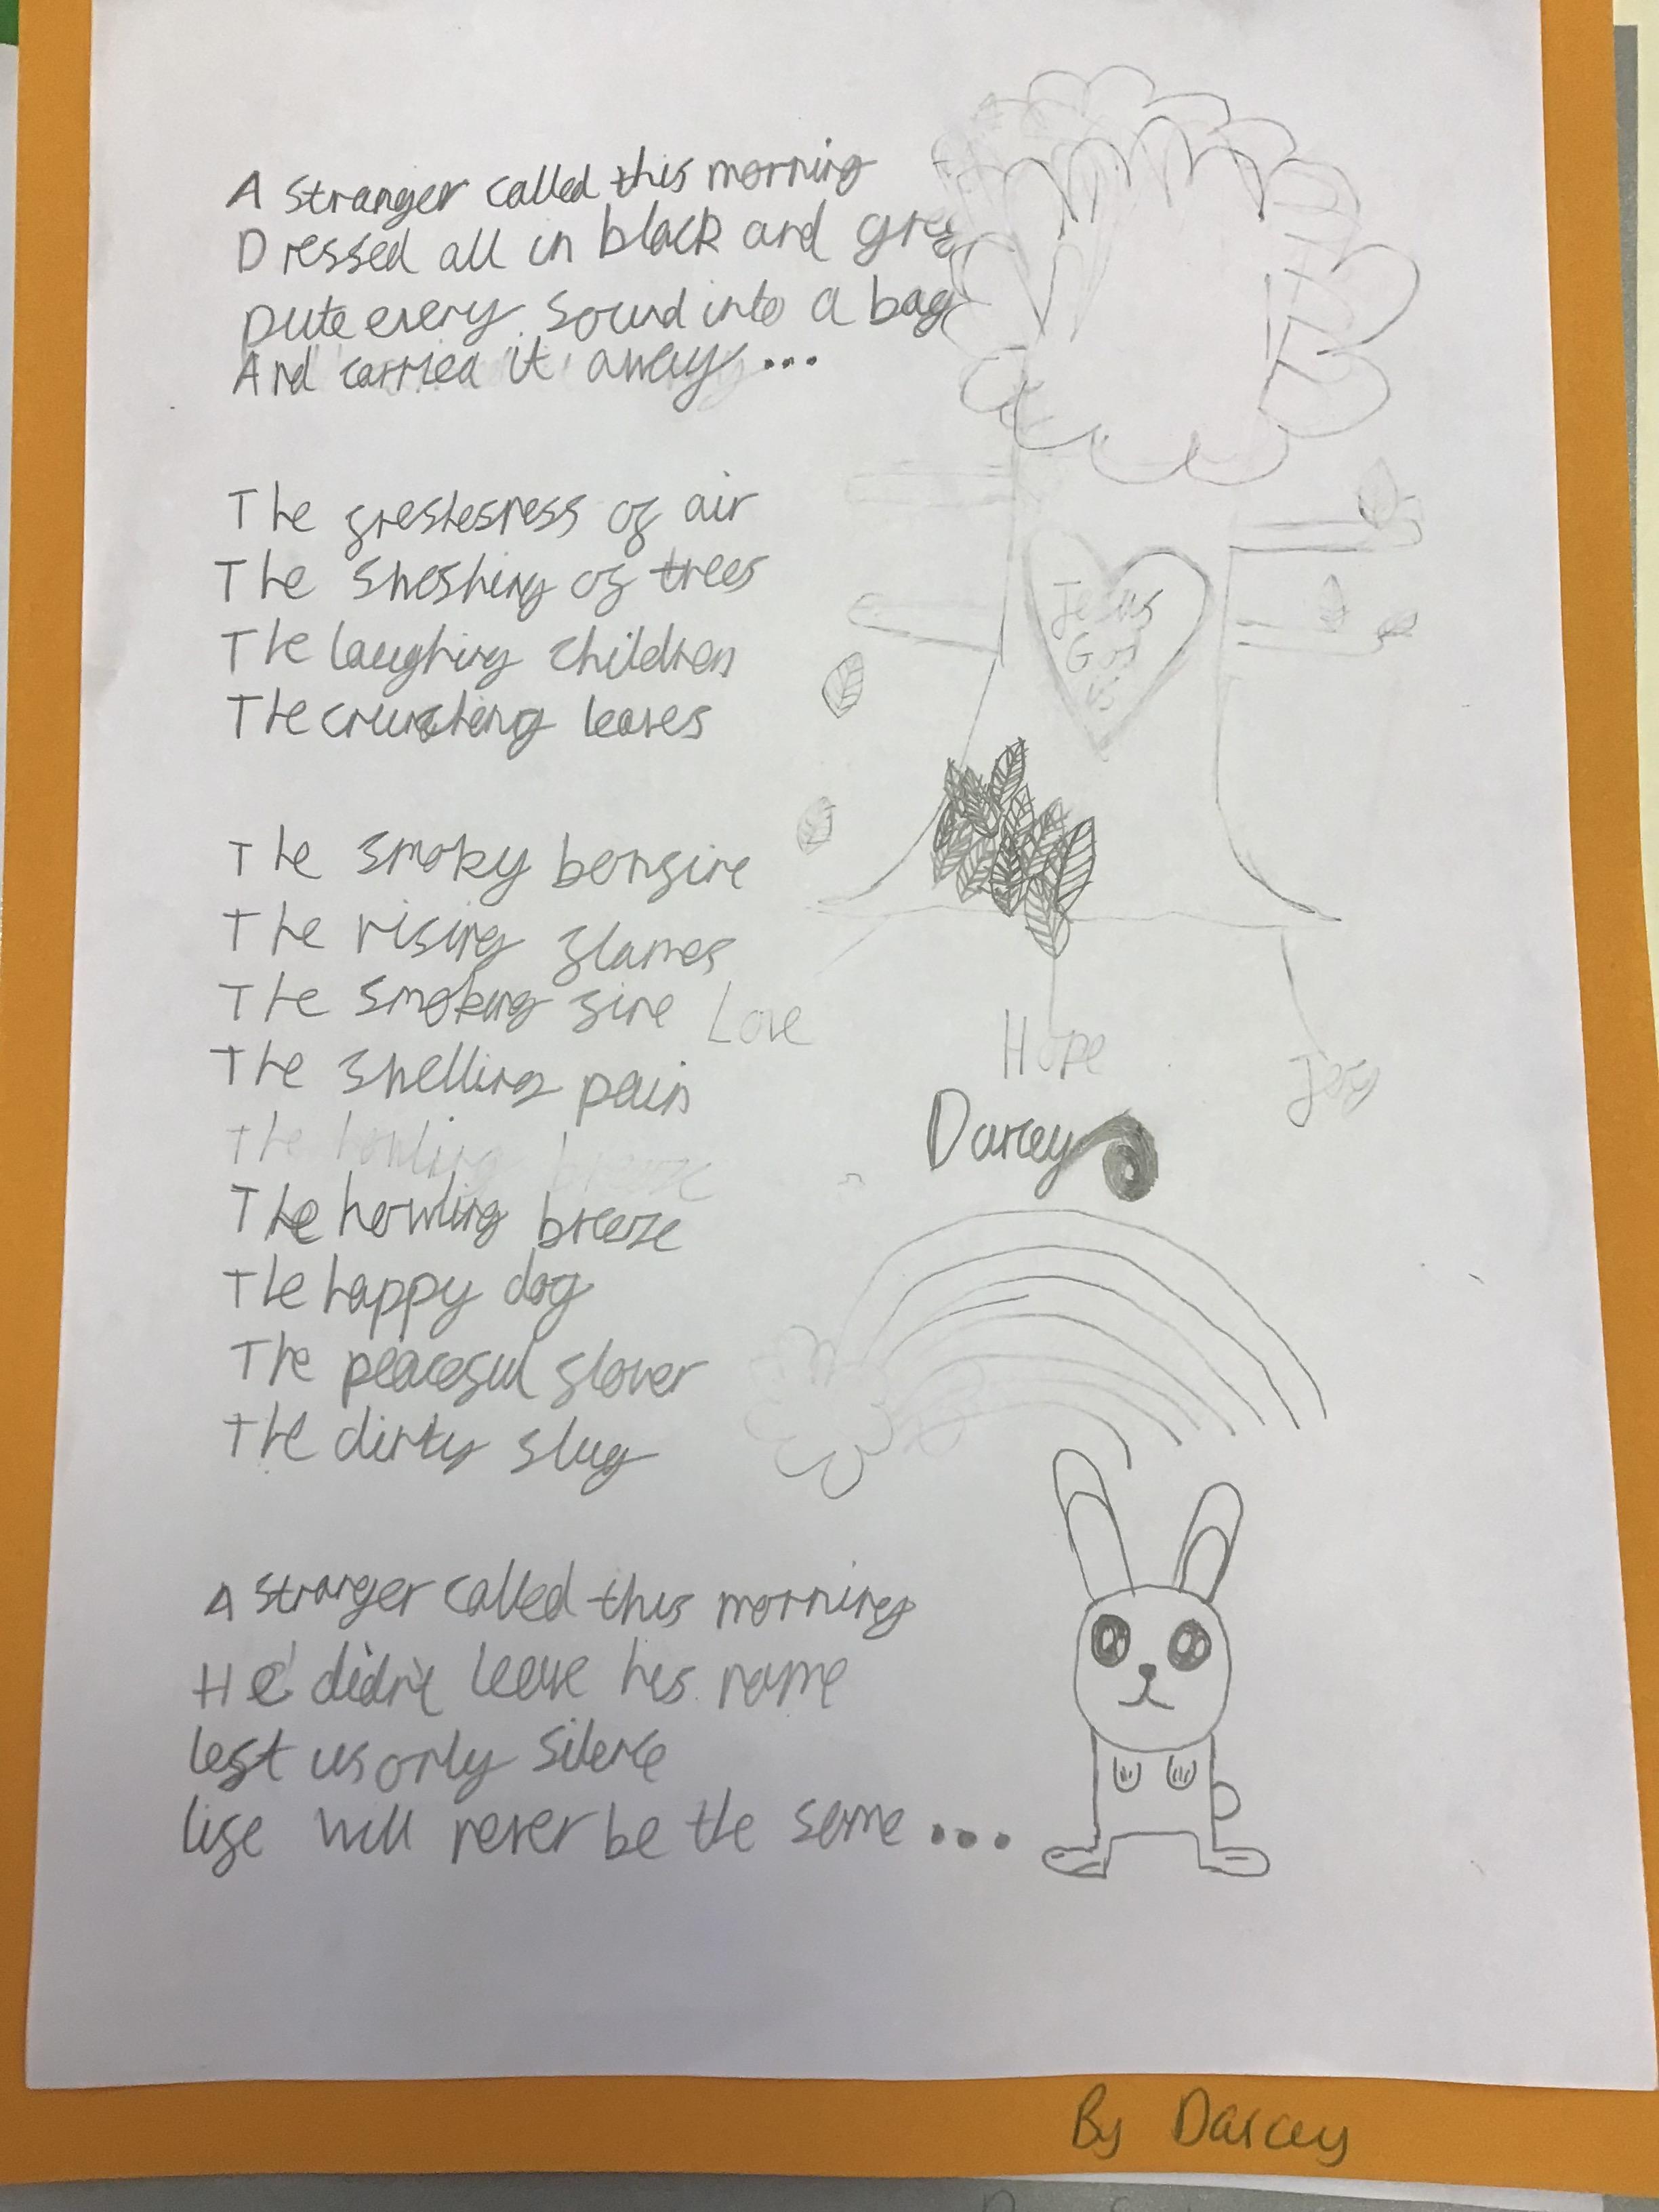 A stranger called this morning
Dressed all in black and gre
pute every sound into a bag
And carried it away...
The of air
The of trees
The laughing children
The leaves
The smoky bonfire
The rising flames
The smoking fire
The smelling pain
The howling breeze
The howling breeze
The happy dog
The peaceful flower
The dirty slug
A stranger called this morning
He didn't leave his name
left us only silence
life will never be the same...
Jesus
God
is
Love
Hope
Joy
Darcey
By Darcey